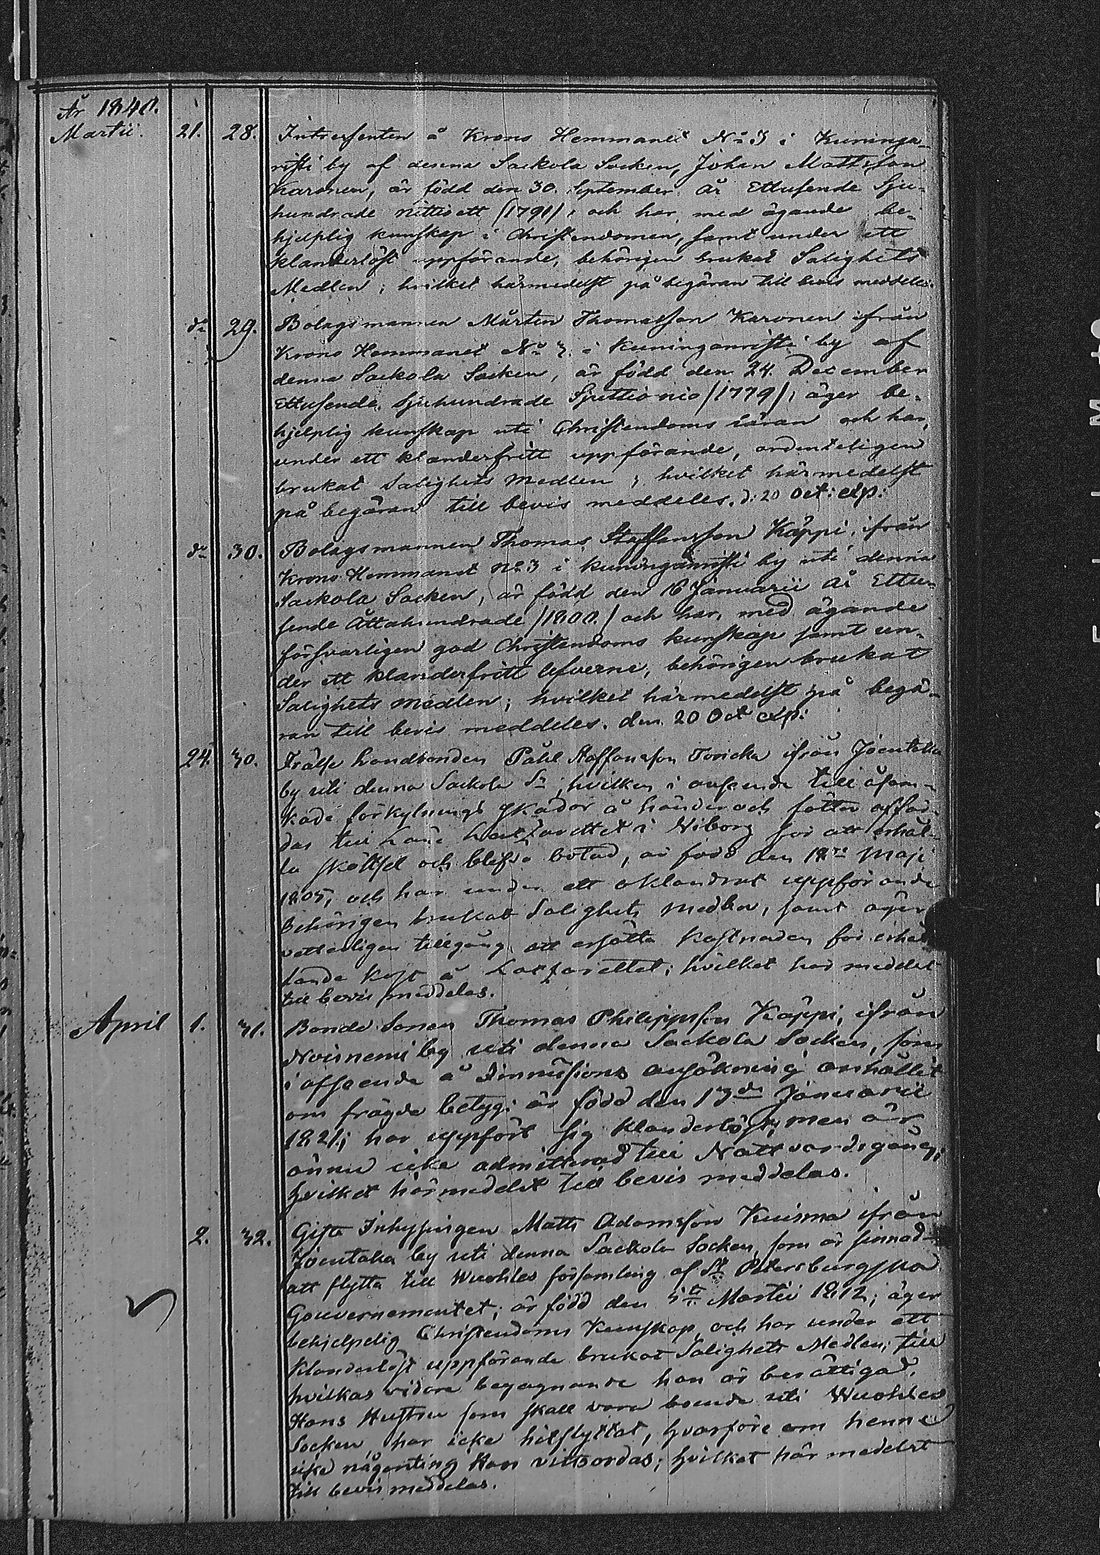 År 1840.
Martii. 21. 28. Intressenten å Krono Hemmanet No 3 i Kuninga-
risti by af denna Sackola Socken, Johan Mattsson
Karonen, är född den 30 September År Ettusende Sju-
hundrade nittioett /1791/; och har, med ägande be-
hjelplig kunskap i Christendomen, samt under ett
klanderlöst uppförande, behörigen brukat Salighets
Medlen; hvilket härmedelst på begäran till bevis meddeles.
do 29. Bolagsmannen Mårten Thomasson Karonen ifrån
Krono Hemmanet No 3 i Kuninganristi by af
denna Sackola Socken, är född den 24 December
Ettusende Sjuhundrade Sjuttionio /1779/; äger be-
hjelplig kunskap uti Christendoms läran och har,
under ett klanderfritt uppförande, ordenteligen
brukat Salighets Medlen; hvilket härmedelst
på begäran till bevis meddeles. d: 20 Oct: exp:
do 30. Bolagsmannen Thomas Staffansson Käppi, ifrån
Krono Hemmanet No 3 i Kuninganristi by uti denna
Sackola Socken, är född den 16 Januarii År Ettu-
sende Åttahundrade /1800/ och har, med ägande
försvarligen god Christendoms kunskap samt un-
der ett klanderfritt lefverne, behörigen brukat
Salighets Medlen; hvilket härmedelst på begä-
ran till bevis meddeles. den 20 Oct exp:
24. 30. Frälse Landbonden Påhl Staffansson Toricka ifrån Joentaka
by uti denna Sackola Sn, hvilken i anseende till åsam-
kade förkylnings skador å händer och fötter
das till Läns Lazarettet i Wiborg för att erhål-
la skötsel och blifva botad, är född den 18de Maji
1805, och har under ett oklandrat uppförande
behörigen brukat Salighets Medlen, samt äger
vetterligen tillgång att ersätta kostnaden för erhål-
lande kost å Lazarettet; hvilket här medelst
till bevis meddelas.
April 1. 31. Bonde Sonen Thomas Philippsson Käppi, ifrån
Noisnemi by uti denna Sackola Socken, som
i afseende å Dimissions ansökning anhållit
om frägde betyg; är född den 13de Januarii
1821; har uppfört sig klanderlöst, men är
ännu icke admitterad till Nattvardsgång;
hvilket härmedelst till bevis meddelas.
2. 32. Gifte Inhysingen Matts Adamsson Kuisma ifrån
Joentaka by uti denna Sackola Socken, som är sinnad
att flytta till Wuohles församling af St Petersburgska
Gouvernementet; är född den 5te Martii 1812; äger
behjelpelig Christendoms Kunskap, och har under ett
klanderlöst uppförande brukat Salighets Medlen, till
hvilkas vidare begagnande han är berättigad.
Hans Hustru som skall vara boende uti Wuohles
Socken, har icke hitflyttat, hvarföre om henne
icke någonting kan vitsordas; hvilket här medelst
till bevis meddelas.